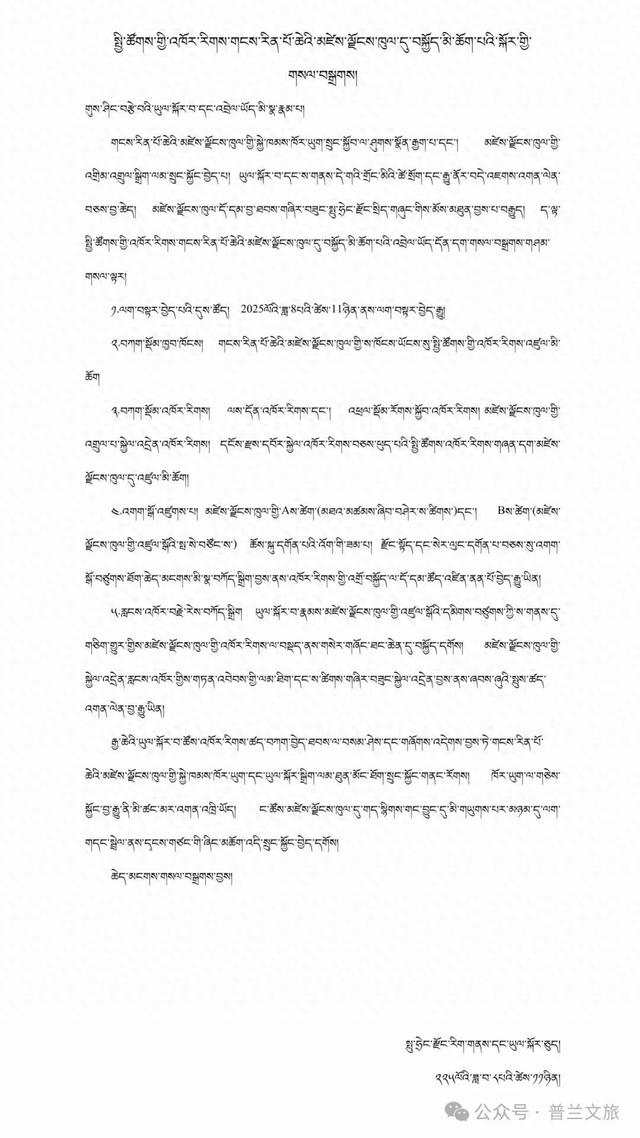 སྤྱི་ཚོགས་ཀྱི་འཁོར་རིགས་གངས་རིན་པོ་ཆེའི་མཛེས་ལྗོངས་ཁུལ་དུ་བསྐྱོད་མི་ཆོག་པའི་སྐོར་གྱི་
གསལ་བསྒྲགས།
གུས་ཤིང་བརྩེ་བའི་ཡུལ་སྐོར་བ་དང་འབྲེལ་ཡོད་མི་སྣ་རྣམ་པ།
གངས་རིན་པོ་ཆེའི་མཛེས་ལྗོངས་ཁུལ་གྱི་སྐྱེ་ཁམས་ཁོར་ཡུག་སྲུང་སྐྱོབ་ལ་ཤུགས་སྣོན་རྒྱག་པ་དང་། མཛེས་ལྗོངས་ཁུལ་གྱི་
འགྲིམ་འགྲུལ་སྒྲིག་ལམ་སྲུང་སྐྱོང་བྱེད་པ། ཡུལ་སྐོར་བ་དང་ས་གནས་དེ་གའི་གྲོང་མིའི་ཚེ་སྲོག་དང་རྒྱུ་ནོར་བདེ་འཇགས་འགན་ལེན་
བཅས་བྱ་ཆེད། མཛེས་ལྗོངས་ཁུལ་དོ་དམ་བྱ་ཐབས་གཞིར་བཟུང་སྤུ་ཧྲེང་རྫོང་སྲིད་གཞུང་གིས་མོས་མཐུན་བྱས་པ་བརྒྱུད། ད་ལྟ་
སྤྱི་ཚོགས་ཀྱི་འཁོར་རིགས་གངས་རིན་པོ་ཆེའི་མཛེས་ལྗོངས་ཁུལ་དུ་བསྐྱོད་མི་ཆོག་པའི་འབྲེལ་ཡོད་དོན་དག་གསལ་བསྒྲགས་གཤམ་
གསལ་ལྟར།
༡.ལག་བསྟར་བྱེད་པའི་དུས་ཚོད། 2025ལོའི་ཟླ་8པའི་ཚེས་11ཉིན་ནས་ལག་བསྟར་བྱེད་རྒྱུ།
༢.བཀག་སྡོམ་ཁྱབ་ཁོངས། གངས་རིན་པོ་ཆེའི་མཛེས་ལྗོངས་ཁུལ་གྱི་ས་ཁོངས་ཡོངས་སུ་སྤྱི་ཚོགས་ཀྱི་འཁོར་རིགས་འཛུལ་མི་
ཆོག
༣.བཀག་སྡོམ་འཁོར་རིགས། ལས་དོན་འཁོར་རིགས་དང་། འཕྲལ་སྡོམ་རོགས་སྐྱོབ་འཁོར་རིགས། མཛེས་ལྗོངས་ཁུལ་གྱི་
འགྲུལ་པ་སྐྱེལ་འདྲེན་འཁོར་རིགས། དངོས་རྫས་དབོར་སྐྱེལ་འཁོར་རིགས་བཅས་ཕུད་པའི་སྤྱི་ཚོགས་འཁོར་རིགས་གཞན་དག་མཛེས་
ལྗོངས་ཁུལ་དུ་འཛུལ་མི་ཆོག།
༤.འགག་སྒོ་འཛུགས་པ། མཛེས་ལྗོངས་ཁུལ་གྱི་Aས་ཚིག་(མཐའ་མཚམས་ཞིབ་བཤེར་ས་ཚིགས་)དང་། Bས་ཚིག་(མཛེས་
ལྗོངས་ཁུལ་གྱི་འཛུལ་སྒོའི་སྤ་སེ་བཙོང་ས་) ཆོས་སྐུ་དགོན་པའི་འོག་གི་ཟམ་པ། རྫོང་སྟོད་དང་སེར་ལུང་དགོན་པ་བཅས་སུ་འགག་
སྒོ་བཙུགས་ཐོག་ཆེད་མངགས་མི་སྣ་བཀོད་སྒྲིག་བྱས་ནས་འཁོར་རིགས་ཀྱི་འགྲོ་བསྐྱོད་ལ་དོ་དམ་ཚོད་འཛིན་ནན་པོ་བྱེད་རྒྱུ་ཡིན།
༥.རླངས་འཁོར་བརྗེ་རེས་བཀོད་སྒྲིག ཡུལ་སྐོར་བ་རྣམས་མཛེས་ལྗོངས་ཁུལ་གྱི་འཛུལ་སྒོའི་དམིགས་བཙུགས་ཀྱི་ས་གནས་དུ་
གཅིག་གྱུར་གྱིས་མཛེས་ལྗོངས་ཁུལ་གྱི་འཁོར་རིགས་ལ་བསྡད་ནས་གསེར་གཞོང་ཐང་ཆེན་དུ་བསྐྱོད་དགོས། མཛེས་ལྗོངས་ཁུལ་གྱི་
སྐྱེལ་འདྲེན་རླངས་འཁོར་གྱིས་གཏན་འབེབས་ཀྱི་ལམ་ཐིག་དང་ས་ཚིགས་གཞིར་བཟུང་སྐྱེལ་འདྲེན་བྱས་ནས་ཞབས་ཞུའི་སྤུས་ཚད་
འགན་ལེན་བྱ་རྒྱུ་ཡིན།
རྒྱ་ཆེའི་ཡུལ་སྐོར་བ་ཚོས་འཁོར་རིགས་ཚད་བཀག་བྱེད་ཐབས་ལ་བསམ་ཤེས་དང་གཞོགས་འདེགས་བྱས་ཏེ་གངས་རིན་པོ་
ཆེའི་མཛེས་ལྗོངས་ཁུལ་གྱི་སྐྱེ་ཁམས་ཁོར་ཡུག་དང་ཡུལ་སྐོར་སྒྲིག་ལམ་ཐུན་མོང་ཐོག་སྲུང་སྐྱོང་གནང་རོགས། ཁོར་ཡུག་ལ་གཅེས་
སྐྱོང་བྱ་རྒྱུ་ནི་མི་ཚང་མར་འགན་འཁྲི་ཡོད། ང་ཚོས་མཛེས་ལྗོངས་ཁུལ་དུ་གད་སྙིགས་གང་བྱུང་དུ་མི་གཡུགས་པར་མཉམ་དུ་ལག་
གདང་སྦྲེལ་ནས་དྭངས་གཙང་གི་ཞིང་མཆོག་འདི་སྲུང་སྐྱོང་བྱེད་དགོས།
ཆེད་མངགས་གསལ་བསྒྲགས་བྱས།
སྤུ་ཧྲེང་རྫོང་རིག་གནས་དང་ཡུལ་སྐོར་ཅུད།
༢༢༥ལོའི་ཟླ་བ་༨པའི་ཚེས་༡༡ཉིན།
公众号·普兰文旅